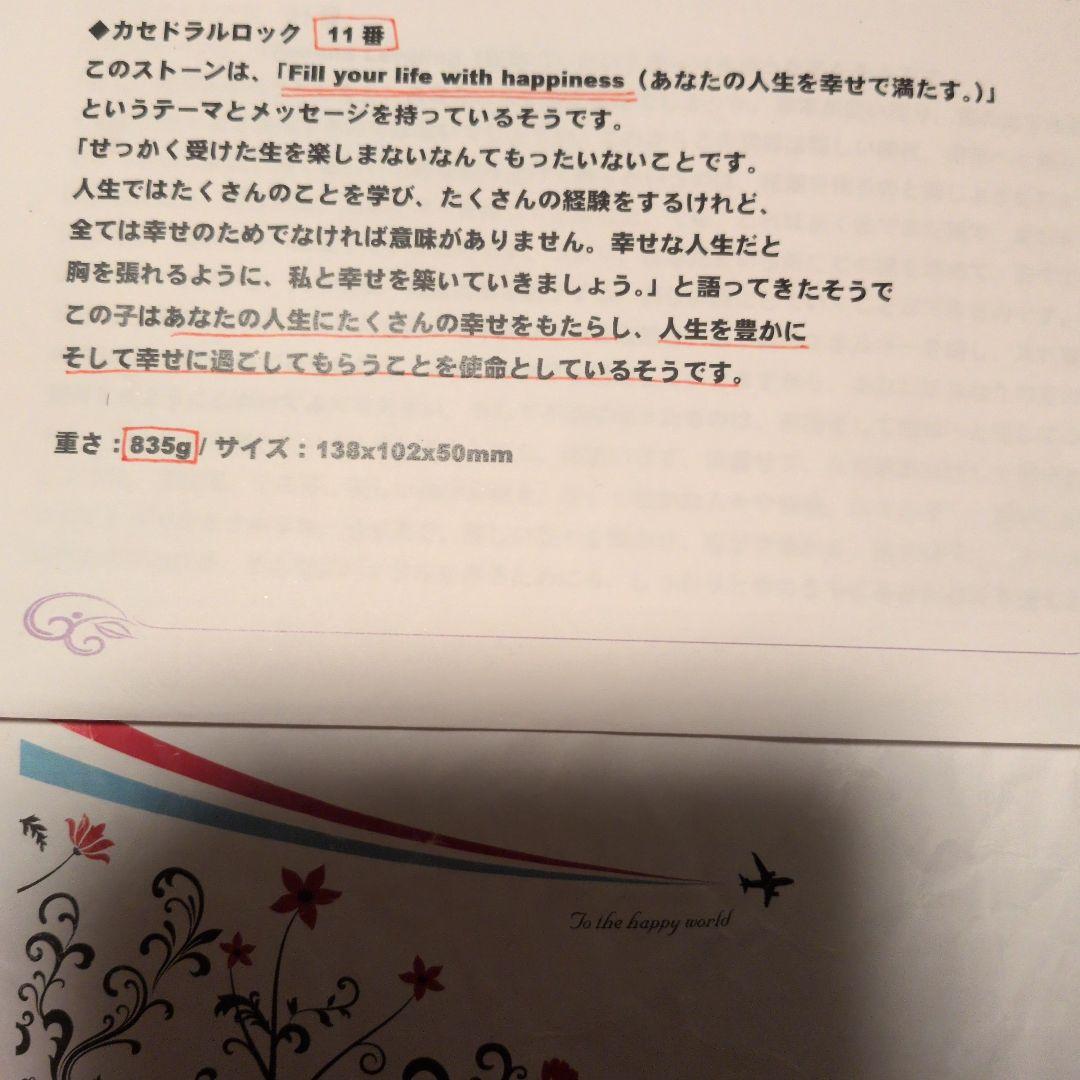 ◆カセドラルロック 11番
このストーンは、「Fill your life with happiness（あなたの人生を幸せで満たす。）」
というテーマとメッセージを持っているそうです。
「せっかく受けた生を楽しまないなんてもったいないことです。
人生ではたくさんのことを学び、たくさんの経験をするけれど、
全ては幸せのためでなければ意味がありません。幸せな人生だと
胸を張れるように、私と幸せを築いていきましょう。」と語ってきたそうで
この子はあなたの人生にたくさんの幸せをもたらし、人生を豊かに
そして幸せに過ごしてもらうことを使命としているそうです。
重さ：835g / サイズ：138x102x50mm
To the happy world